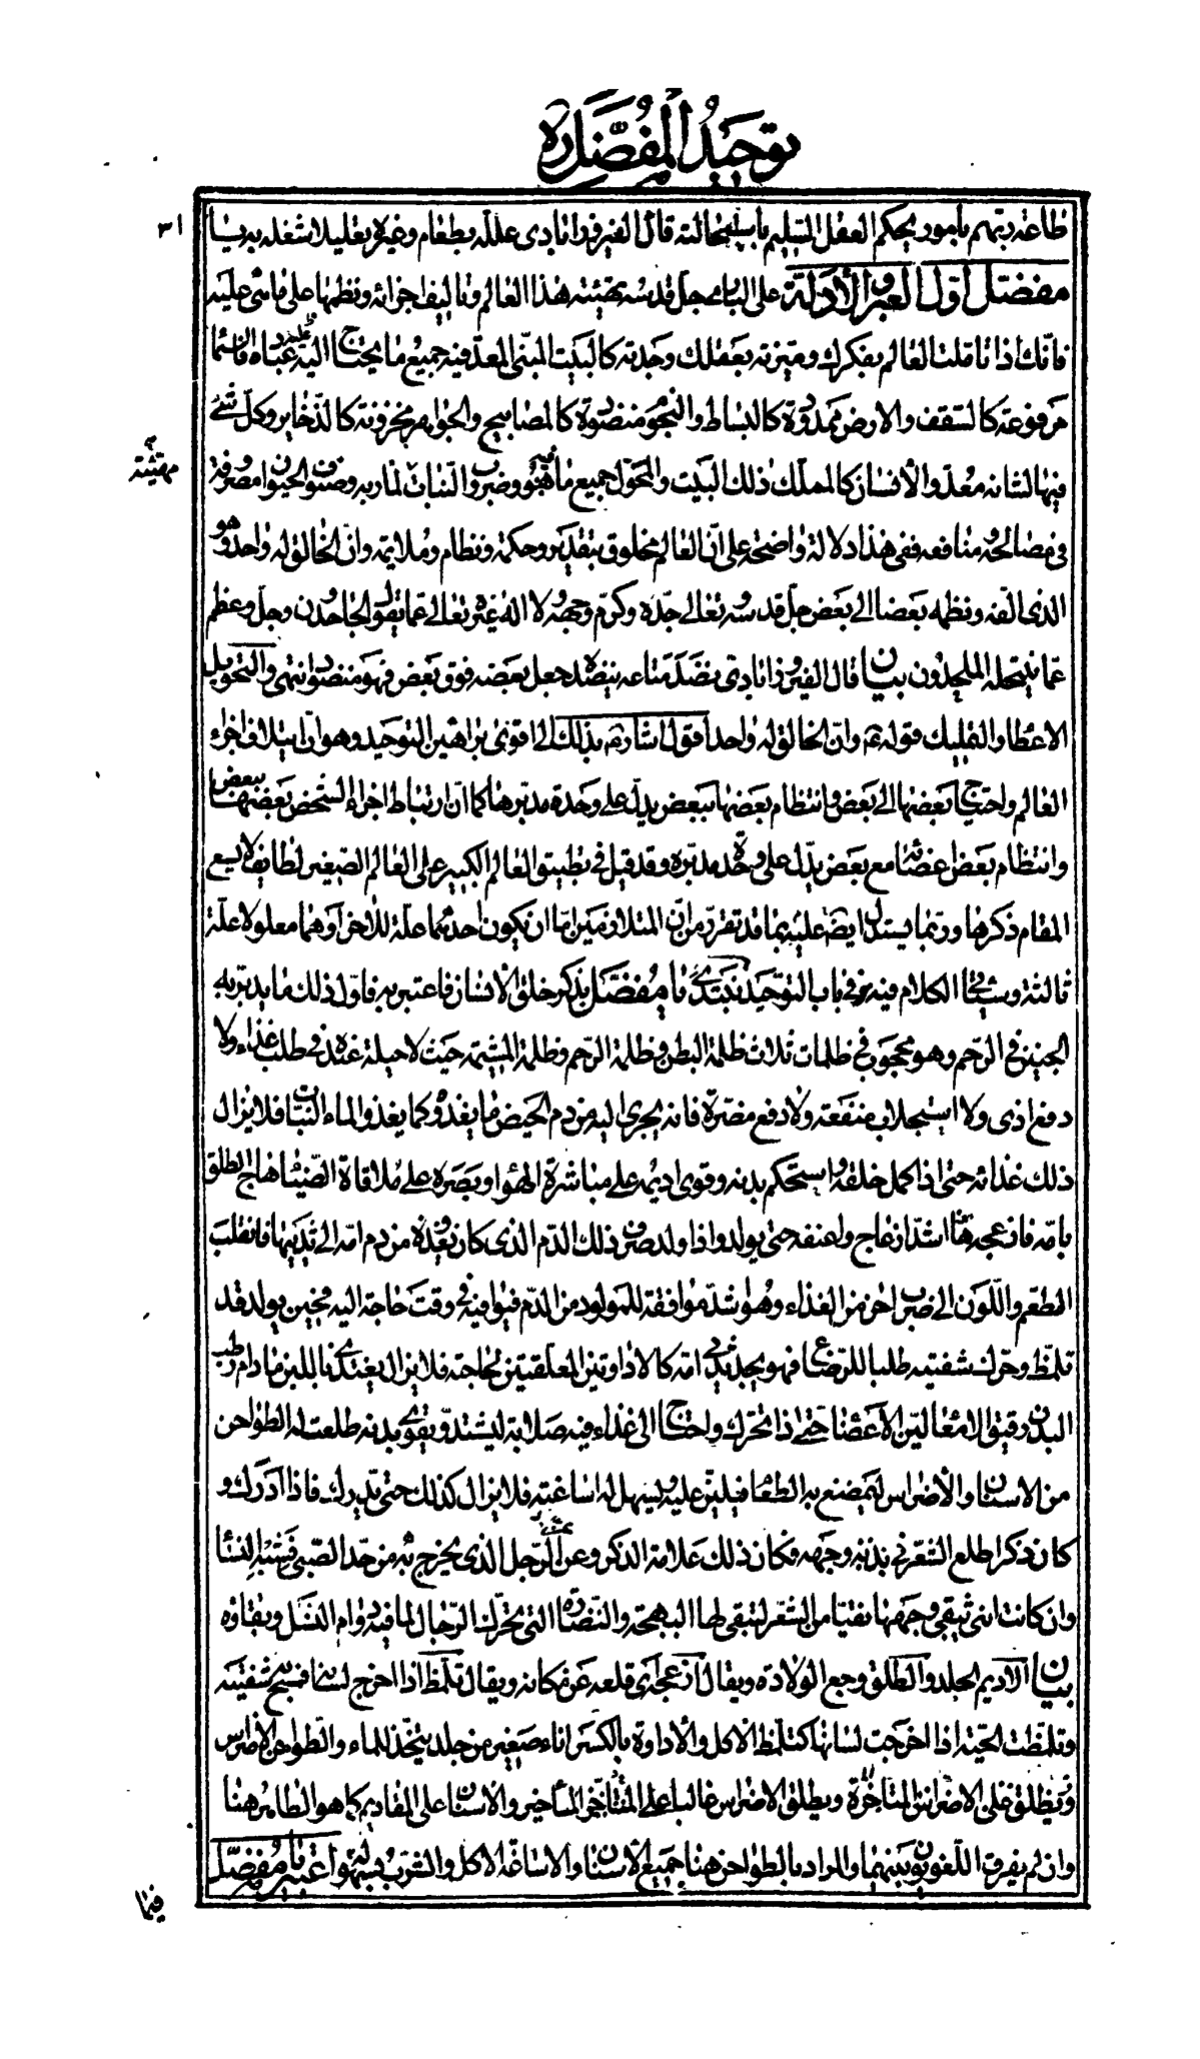 توحيد المفضل ره
٣١
طاعة ربّهم بأمور يحكم العقل السليم باستحالته قال الفيروزآبادى علله بطعام وغيره تعليلا شغله به يا
مفضّل اوّل العبر والأدلّة على البارى جلّ قدسه تهيئة هذا العالم وتأليف اجزائه ونظمها على ما هى عليه
فانّك اذا تأمّلت العالم بفكرك وميّزته بعقلك وجدته كالبيت المبنىّ المعدّ فيه جميع ما يحتاج اليه عباده فالسّماء
مرفوعة كالسّقف والارض ممدودة كالبساط والنّجوم منضودة كالمصابيح والجواهر مخزونة كالذّخاير وكل شئ
فيها لشانه معدّ والأنسان كالمملّك ذلك البيت والمخوّل جميع ما فيه وضروب النّبات مهيّئة لمآربه وصنوف الحيوان مصروفة
مهيّئة
فى مصالحه ومنافعه ففى هذا دلالة واضحة على انّ العالم مخلوق بتقدير وحكمة ونظام وملايمة وانّ الخالق له واحد وهو
الذى الّفه ونظمه بعضا الى بعض جلّ قدسه وتعالى جدّه وكرم وجهه ولا اله غيره تعالى عمّا يقول الجاحدون وجلّ وعظم
عمّا ينتحله الملحدون بيان قال الفيروزآبادى نضد متاعه ينضده جعل بعضه فوق بعض فهو منضود انتهى والتخويل
الاعطاء والتمليك قوله ع وانّ الخالق له واحد اقول اشارع بذلك الى اقوى براهين التوحيد وهو انّ ايتلاف اجزاء
العالم واحتياج بعضها الى بعض وانتظام بعضها ببعض يدلّ على وحدة مدبّرها كما انّ ارتباط اجزاء الشخص بعضها ببعض
وانتظام بعض اعضائه مع بعض يدلّ على وحدة مدبّره وقد قيل فى تطبيق العالم الكبير على العالم الصّغير لطايف لا يسع
المقام ذكرها وربّما يستدلّ ايضا عليه بما قد تقرّر من انّ المتلازمين امّا ان يكون احدهما علّة للآخر او هما معلولا علّة
ثالثة وسيأتى الكلام فيه فى باب التوحيد نبتدئ يا مفضّل بذكر خلق الانسان فاعتبر به فاوّل ذلك ما يدبّر به
الجنين فى الرّحم وهو محجوب فى ظلمات ثلاث ظلمة البطن وظلمة الرّحم وظلمة المشيمة حيث لا حيلة عنده فى طلب غذاء ولا
دفع اذى ولا استجلاب منفعة ولا دفع مضرّة فانّه يجرى اليه من دم الحيض ما يغذوه كما يغذو الماء النّبات فلا يزال
ذلك غذائه حتى اذا كمل خلقه واستحكم بدنه وقوى اديمه على مباشرة الهواء وبصره على ملاقاة الضّياء هاج الطلق
بامّه فازعجه اشدّ ازعاج واعنفه حتى يولد واذا ولد صرف ذلك الدّم الذى كان يغذوه من دم امّه الى ثدييها فانقلب
الطّعم واللّون الى ضرب اخر من الغذاء وهو اشدّ موافقة للمولود من الدّم فيوافيه فى وقت حاجته اليه فحين يولد قد
تلمّظ وحرّك شفتيه طلبا للرّضاع فهو يجد ثديى امّه كالاداوتين المعلّقتين لحاجته فلا يزال يغتذى باللبن ما دام رطب
البدن رقيق الامعاء ليّن الاعضاء حتّى اذا تحرّك واحتاج الى غذاء فيه صلابة ليشتدّ ويقوى بدنه طلعت له الطواحن
من الاسنان والأضراس ليمضغ به الطّعام فيلين عليه ويسهل له اساغته فلا يزال كذلك حتى يدرك فاذا ادرك و
كان ذكرا طلع الشّعر فى وجهه فكان ذلك علامة الذكر وعزّ الرّجل الذى يخرج به من حدّ الصّبى وشبه النّساء
وان كانت انثى يبقى وجهها نقيّا من الشّعر لتبقى لها البهجة والنّضارة الّتى تحرّك الرّجال لما فيه دوام النسل وبقاؤه
بيان الاديم الجلد والطلق وجع الولادة ويقال ازعجه اى قلعه عن مكانه ويقال تلمّظ اذا اخرج لسانه فمسح شفتيه
وتلمّظت الحيّة اذا اخرجت لسانها كتلمّظ الاكل والأداوة بالكسر اناء صغير من جلد يتّخذ للماء والطواحن الاضراس
ويطلق على الاضراس المتأخّرة ويطلق الاضراس غالبا على المآخير والأسنان على المقاديم كما هو الظاهر هنا
وان لم يفرق اللّغويون بينهما والمراد بالطواحن هنا جميع الأسنان والاساغة الاكل والشرب بسهولة اعتبر يا مفضّل
فيما